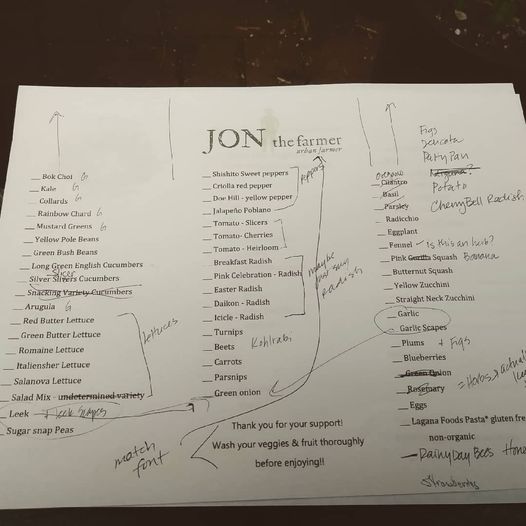 JON the farmer
urban farmer
__ Bok Choi G
__ Kale G
__ Collards G
__ Rainbow Chard G
__ Mustard Greens G
__ Yellow Pole Beans
__ Green Bush Beans
__ Long Green English Cucumbers
Slicer
__ Silver Slivers Cucumbers
__ Snacking Variety Cucumbers
__ Aruguia G
__ Red Butter Lettuce
__ Green Butter Lettuce
__ Romaine Lettuce
__ Italiensher Lettuce
__ Salanova Lettuce
__ Salad Mix - undetermined variety
lettuces
__ Leek - Leek Scapes
__ Sugar snap Peas
match
font
__ Shishito Sweet peppers
__ Criolla red pepper
__ Doe Hill - yellow pepper
__ Jalapeño Poblano
peppers
__ Tomato - Slicers
__ Tomato- Cherries
__ Tomato - Heirloom
__ Breakfast Radish
__ Pink Celebration - Radish
__ Easter Radish
__ Daikon - Radish
__ Icicle - Radish
maybe
just say
radish
__ Turnips
__ Beets Kohlrabi
__ Carrots
__ Parsnips
__ Green onion
Thank you for your support!
Wash your veggies & fruit thoroughly
before enjoying!!
Figs
Delicata
Patty Pan
Potato
CherryBell Radish
__ Cilantro
__ Basil
__ Parsley
__ Radicchio
__ Eggplant
__ Fennel - Is this an herb?
__ Pink Squash Banana
__ Butternut Squash
__ Yellow Zucchini
__ Straight Neck Zucchini
__ Garlic
__ Garlic Scapes
__ Plums + Figs
__ Blueberries
__ Green Onion
__ Rosemary = Herbs
__ Eggs
__ Laguna Foods Pasta* gluten fre
non-organic
- Rainy Day Bees Hone
Strawberry